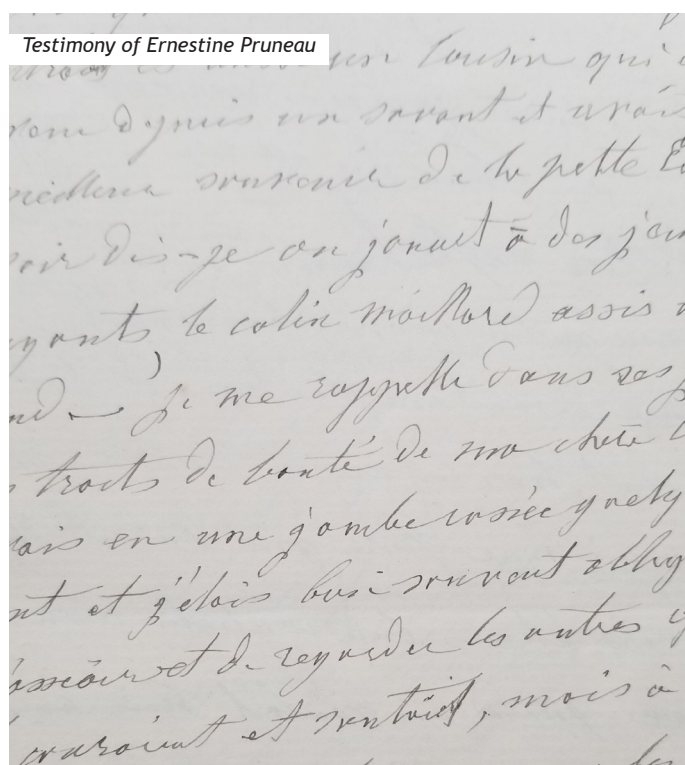 Testimony of Ernestine Pruneau
un cousin qui
venu depuis un savant et vrai
souvenir de la petite
oir dis-je on jouait à des jeu
uyants, le colin maillard assis
nd — je me rappelle dans ses
traits de bonté de ma chère
ais eu une jambe cassée
nt et j'étais bien souvent oblig
asseoir et de regarder les autres
couraient et sautaient, mais à
les